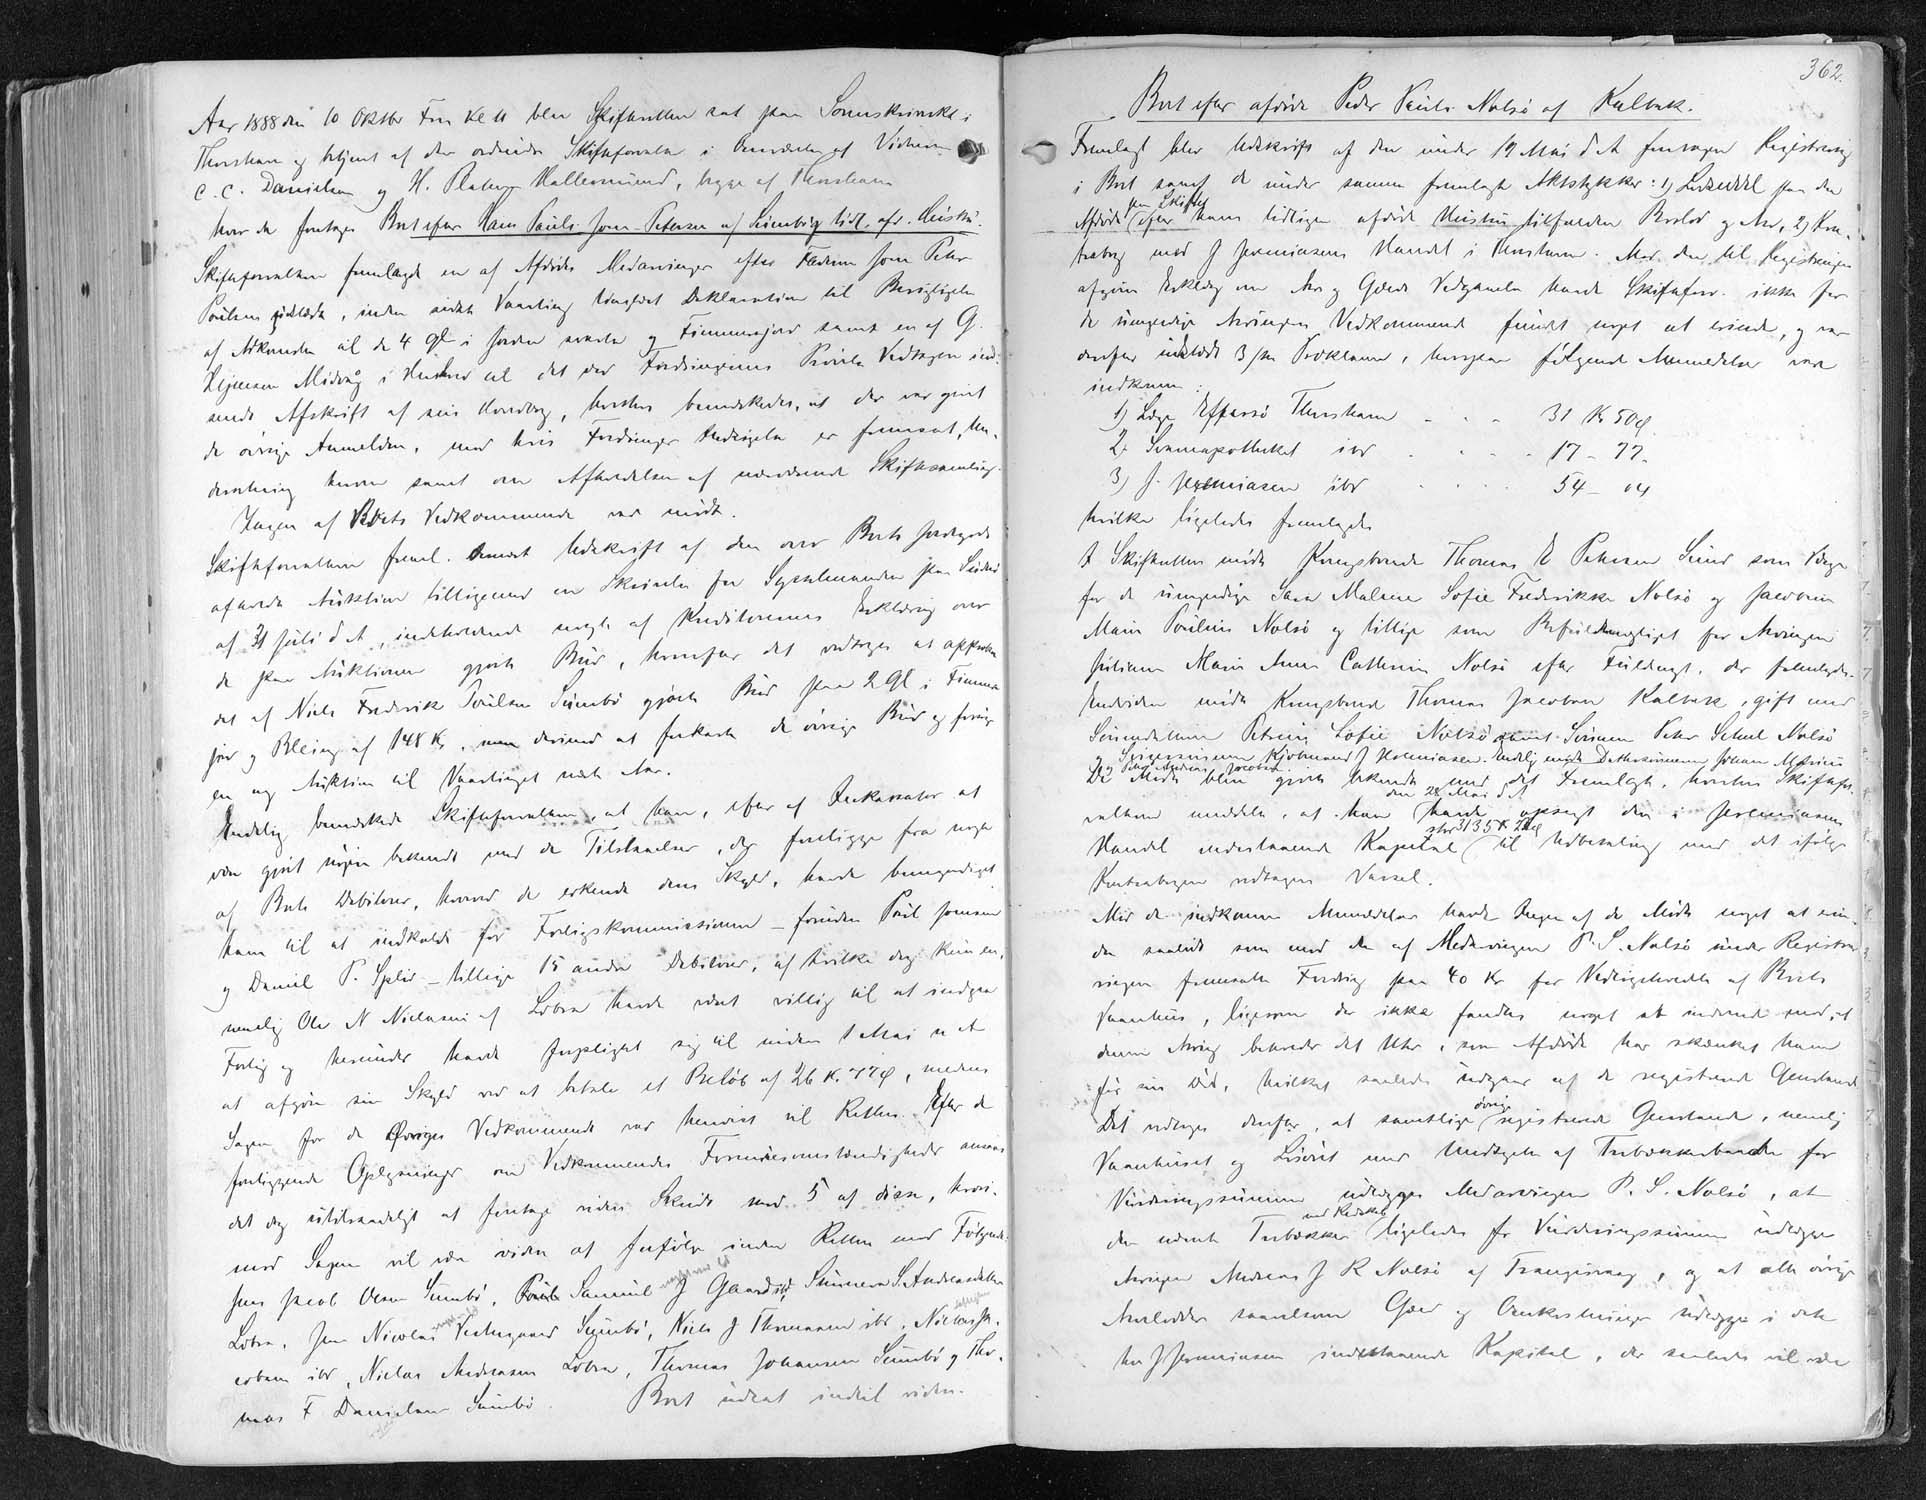 Aar 1888 den 10 Oktbr Fm Kl 11 blev Skifteretten sat paa Sorenskriverkt i
Thorshavn og betjent af den ordinære Skifteforvalter i Overværelse af Vidnerne
C. C. Danielsen og H. Plater Hallermund, begge af Thorshavn
hvor da foretoges Boet efter Hans Pauls. Joen-Petersen af Sumbø og tidl. afd. Hustru.
Skifteforvalteren fremlagde en af Afdødes Medarvinger efter Faderen Joen Peter
Poulsen udstedt, inden sidste Vaarting tinglæst Deklaration til Berigtigelse
af Adkomsten til de 4 Gl i Jorden
Mídvåg i Henhold til det ved Fordringernes Prøvelse Vedtagne ind-
sendt Afskrift af sin Hovedbog, hvorhos bemærkedes, at der var givet
de øvrige Anmeldere, mod hvis Fordringer Indsigelse er fremsat, Un-
derretning herom samt om Afholdelsen af nærværende Skiftesamling.
Ingen af Boets Vedkommende var mødt.
Skifteforvalteren freml. dernæst Udskrift af den over Boets Jordegods
afholdte Auktion tilligemed en Skrivelse fra Sysselmanden paa Suderø
af 31 Juli d A, indeholdende nogle af Kreditorernes Erklæring over
de paa Auktionen gjorte Bud, hvorefter det vedtoges at approbere
det af Niels Frederik Poulsen Sumbø gjorte Bud paa 2 Gl i Fimmer-
jør og Bleing af 148 Kr, men derimod at forkaste de øvrige Bud og foretage
en ny Auktion til Vaartinget næste Aar.
Endelig bemærkede Skifteforvalteren, at han, efter af Inkassator at
være gjort nøjere bekendt med de Tilstaaelser, der foreligge fra nogle
af Boets Debitorer, hvorved de erkende deres Skyld, havde bemyndiget
ham til at indkalde for Forligskommissionen - foruden Poul Joensen
og Daniel P. Splid - tillige 15 andre Debitorer, af hvilke dog kun en,
nemlig Ole N Niclasen af Lobra havde været villig til at indgaa
Forlig og herunder havde forpligtet sig til inden 1 Mai n A
at afgøre sin Skyld ved at betale et Beløb af 26 K. 77 Ø, medens
Sagen for de Øvriges Vedkommende var henvist til Retten. Efter de
foreliggende Oplysninger om Vedkommendes Formuesomstændigheder ansaas
det dog utilraadeligt at foretage videre Skridt mod 5 af disse, hvori-
mod Sagen vil være videre at forfølge inden Retten mod Følgende:
Jens Jacob Olsen Sumbø, Samuel J Glerfoss, Sunneva S. Andreasdatter
Lobra, Jens Nicolai Vestergaard Sumbø, Niels J Thomasen ibd, Niclas Ja-
cobsen ibd, Niclas Andreasen Lobra, Thomas Johansen Sumbø og Tho-
mas F Danielsen Sumbø. Boet udsat indtil videre.
362.
Boet efter afdøde Peder Pauls. Nolsø af Kalbak.
Fremlagt blev Udskrift af den under 19 Mai d A foretagne Registrering
i Boet samt de under samme fremlagte Aktstykker: 1) Lodseddel paa den
Afdøde paa Skiftet efter hans tidligere afdøde Hustru tilfaldne Boslod og Arv, 2) Kon-
trabog med J Jeremiasens Handel i Thorshavn. Mod den til Registreringen
afgivne Erklæring om Arv og Gælds Vedgaaelse havde Skifteforv. ikke for
de umyndige Arvingers Vedkommende fundet noget at erindre, og var
derefter udstedt 3 Mrs Proklama, hvorpaa følgende Anmeldelser vare
indkomne:
1) Læge Effersø Thorshavn - - - 31 Kr 50 Ø
2. Svaneapotheket ibd - - - 17 - 77.
3) J. Jeremiasen ibd - - - 54 - 04
hvilke ligeledes fremlagdes
I Skifteretten mødte Kongsbonde Thomas E Petersen Sund som Værge
for de umyndige Sara Malene Sofie Frederikke Nolsø og Jacobine
Marie Pouline Nolsø og tillige som Befuldmægtiget for Arvingen
Juliane Marie Anna Cathrine Nolsø efter Fuldmagt, der fremlagdes.
Endvidere mødte Kongsbonde Thomas Jacobsen Kalbak, gift med
Sønnedatteren Petrine Sofie Nolsø samt Sønnen Peter Schul Nolsø
og Svigersønnen Kjøbmand J Jeremiasen. Endelig mødte Dattersønnerne Johan Martin
og Poul Andreas Jacobsen.
De Mødte bleve gjorte bekendte med det Fremlagte, hvorhos Skiftefor-
valteren meddelte, at han den 28 Mai d A havde opsagt den i Jeremiasens
Handel indestaaende Kapital stor 3135 K 21 Ø til Udbetaling med det ifølge
Kontrabogen vedtagne Varsel.
Mod de indkomne Anmeldelser havde Ingen af de Mødte noget at erin-
dre saavidt som mod den af Medarvingen P. S. Nolsø under Registre-
ringen fremsatte Fordring paa 40 Kr for Vedligeholdelse af Boets
Vaanhus, ligesom der ikke fandtes noget at indvende mod, at
denne Arving beholder det Uhr, som Afdøde har skænket ham
før sin Død, hvilket saaledes udgaar af de registrerede Genstande
Det vedtoges derefter, at samtlige øvrige registrerede Genstande, nemlig
Vaanhuset og Løsøret med Undtagelse af Trebækkerbaaden for
Vurderingssummen udlægges Medarvingen P. S. Nolsø, at
den nævnte Trebækker med Redskab ligeledes for Vurderingssummen udlægges
Arvingen Andreas J R Nolsø af Trangisvaag, og at alle øvrige
Arvelodder saavelsom Gæld og Omkostninger udlægges i den
hos J Jeremiasen indestaaende Kapital, der saaledes vil være